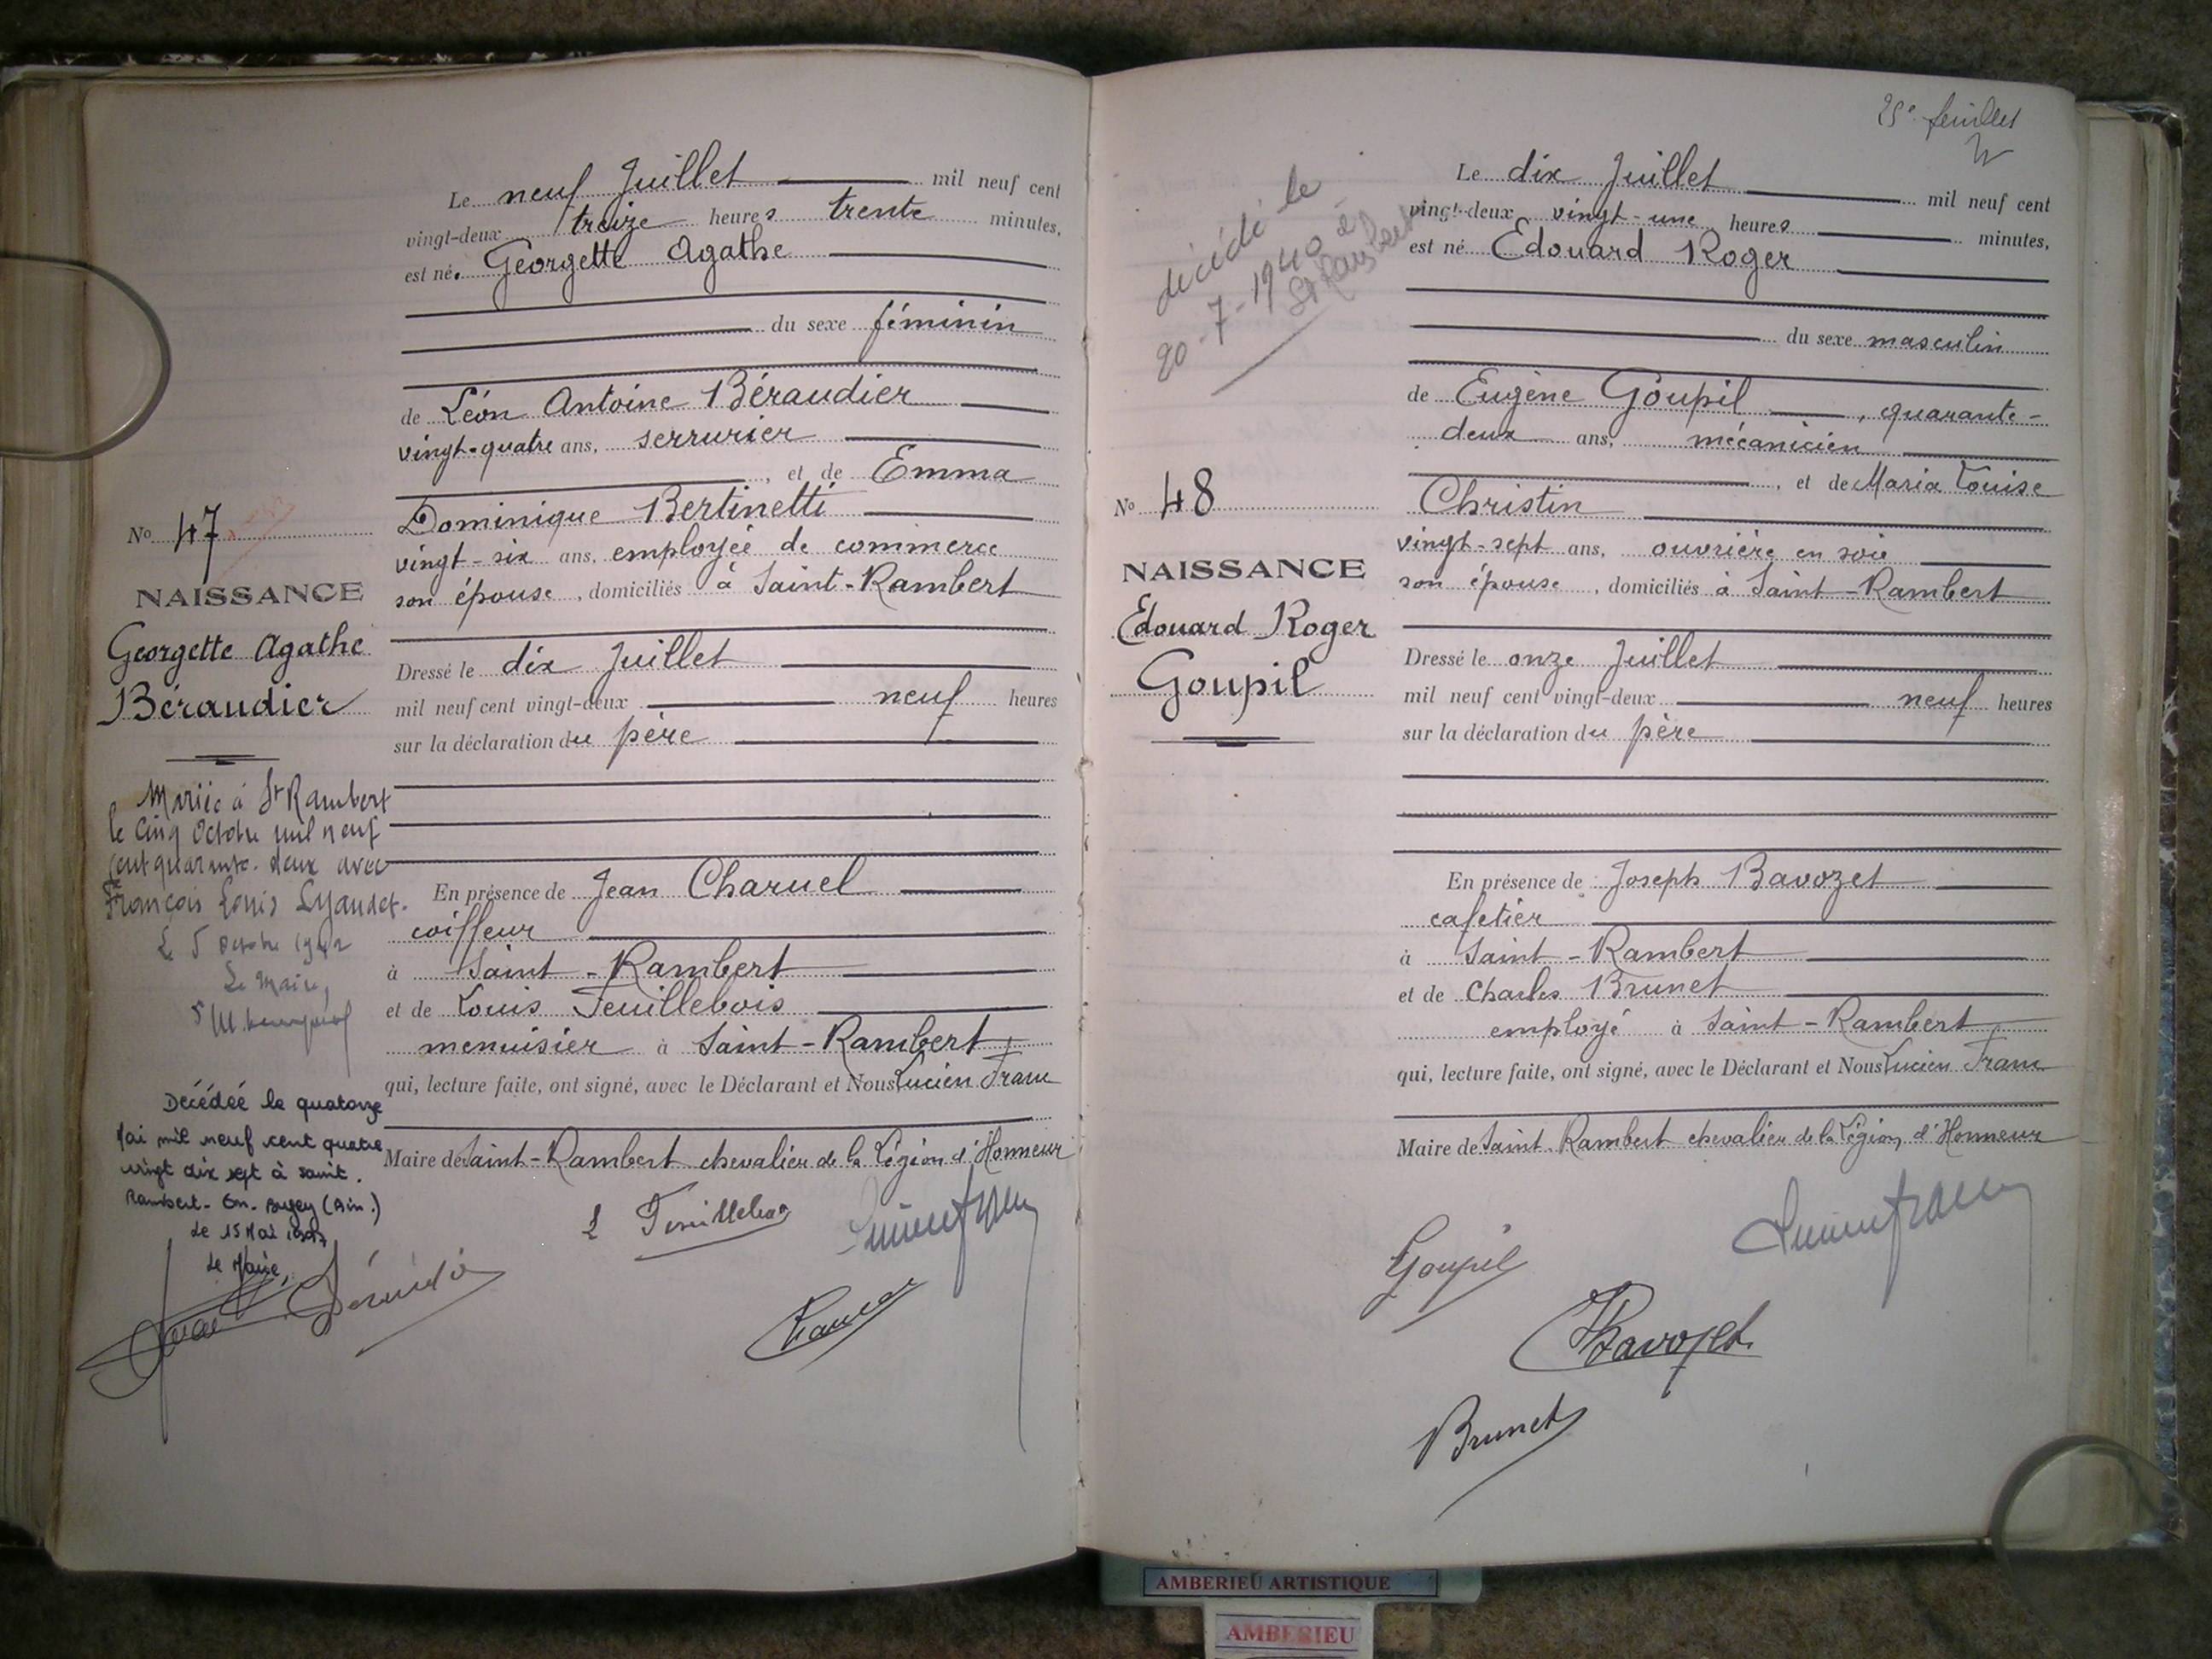 Le neuf Juillet mil neuf cent
vingt-deux treize heures trente minutes,
est née Georgette Agathe
du sexe féminin
de Léon Antoine Béraudier
vingt-quatre ans, serrurier
, et de Emma
Dominique Bertinetti
vingt-six ans, employée de commerce
son épouse, domiciliés à Saint-Rambert
Dressé le dix Juillet
mil neuf cent vingt-deux neuf heures
sur la déclaration du père
En présence de Jean Charuel
coiffeur
à Saint-Rambert
et de Louis Feuillebois
menuisier à Saint-Rambert
qui, lecture faite, ont signé, avec le Déclarant et Nous Lucien Franc
Maire de Saint-Rambert chevalier de la Légion d'Honneur
No 47
NAISSANCE
Georgette Agathe
Béraudier
Mariée à St Rambert
le cinq Octobre mil neuf
cent quarante-deux avec
François Louis Lyaudet.
Le 5 octobre 1942
Le Maire,
Décédée le quatorze
Mai mil neuf cent quatre
vingt dix sept à saint.
Rambert-En-Bugey (Ain.)
Le 15 Mai 1997
Le Maire,
25e feuillet
Le dix Juillet mil neuf cent
vingt-deux vingt-une heures minutes,
est né Edouard Roger
du sexe masculin
de Eugène Goupil, quarante-
deux ans, mécanicien
, et de Maria Louise
Christin
vingt-sept ans, ouvrière en soie
son épouse, domiciliés à Saint-Rambert
Dressé le onze Juillet
mil neuf cent vingt-deux neuf heures
sur la déclaration du père
En présence de Joseph Bavozet
cafetier
à Saint-Rambert
et de Charles Brunet
employé à Saint-Rambert
qui, lecture faite, ont signé, avec le Déclarant et Nous Lucien Franc
Maire de Saint-Rambert chevalier de la Légion d'Honneur
Goupil
Bavozet
Brunet
décédé le
20-7-1940 à
St Rambert
No 48
NAISSANCE
Edouard Roger
Goupil
AMBERIEU ARTISTIQUE
AMBERIEU